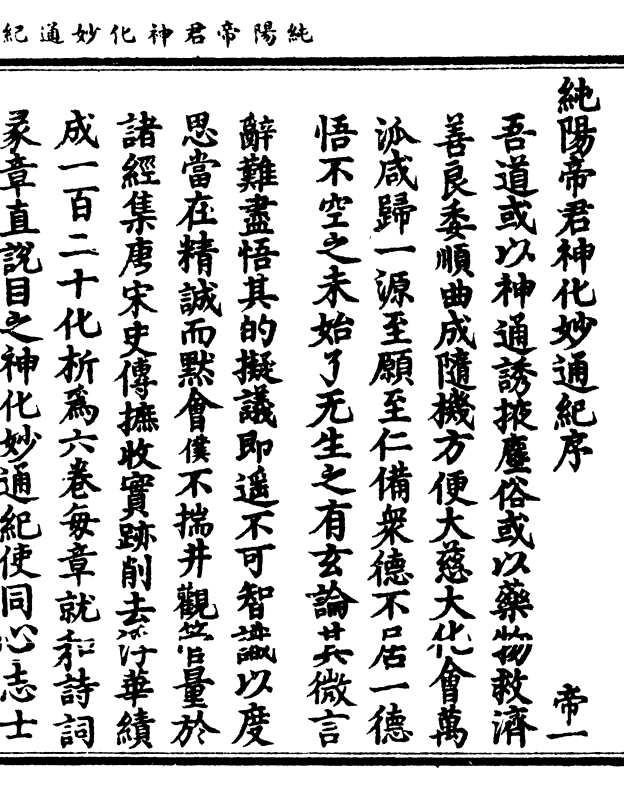 純陽帝君神化妙通紀
純陽帝君神化妙通紀序
帝一
吾道或以神通誘掖塵俗或以藥物救濟
善良委順曲成隨機方便大慈大化會萬
派咸歸一源至願至仁備衆德不居一德
悟不空之未始了无生之有玄論其微言
辭難盡悟其的擬議即遥不可智識以度
思當在精誠而默會僕不揣井觀管量於
諸經集唐宋史傳摭收實跡削去浮華績
成一百二十化析爲六卷每章就和詩詞
彖章直說目之神化妙通紀使同心志士